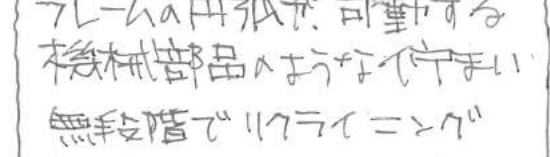 フレームの円弧が、可動する
機械部品のような佇まい
無段階でリクライニング